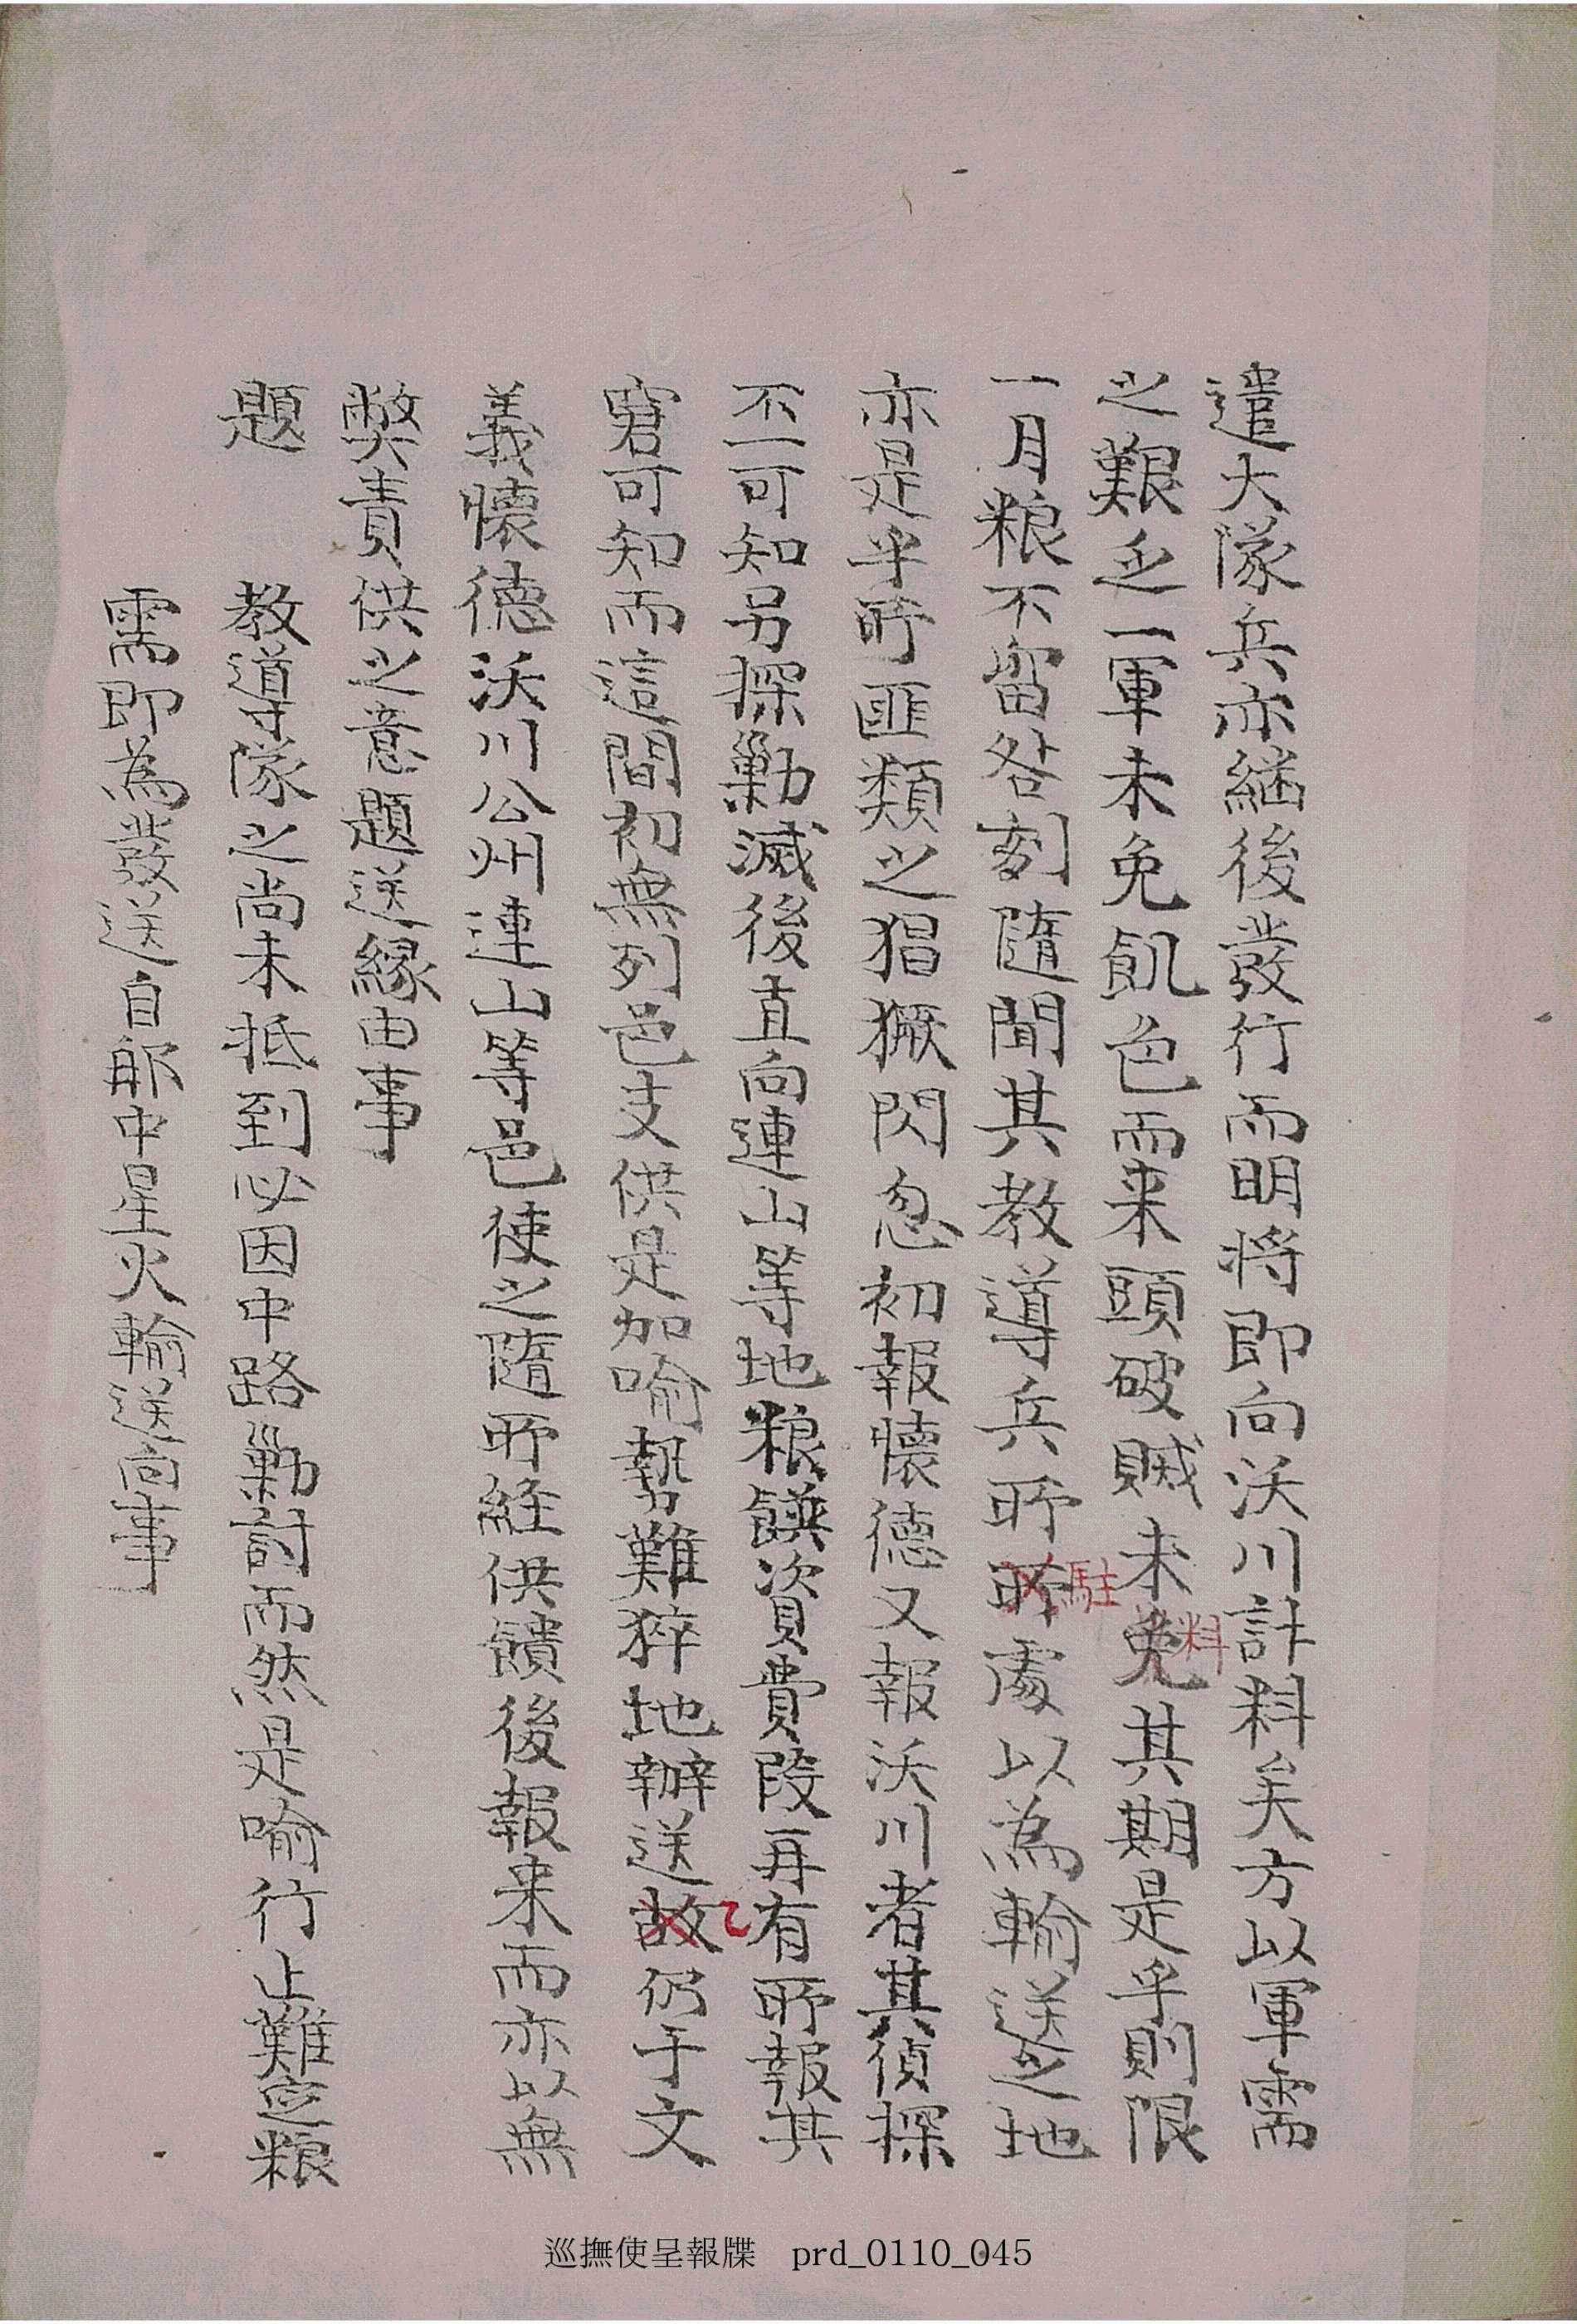 遣大隊兵亦繼後發行而明將即向沃川計料矣方以軍需
之艱乏一軍未免飢色而来頭破賊未免其期是乎則限
料
一月粮不留晷刻隨聞其教導兵所所處以為輸送之地
駐
亦是乎所匪類之猖獗閃忽初報懷德又報沃川者其偵探
不一可知另探勦滅後直向連山等地粮饌資費段再有所報其
窘可知而這間初無列邑支供是如喻勢難猝地辦送故仍于文
乙
義懷德沃川公州連山等邑使之隨所経供饋後報来而亦以無
弊責供之意題送緣由事
題 教導隊之尚未抵到必因中路勦討而然是喻行止難定粮
需即為發送自那中星火輸送向事
巡撫使呈報牒 prd_0110_045